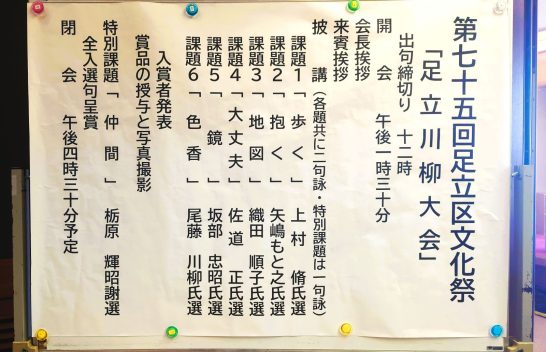 第七十五回足立区文化祭
「足立川柳大会」
出句締切り 十二時
開会 午後一時三十分
会長挨拶
来賓挨拶
披講(各題共に二句詠・特別課題は一句詠)
課題1「歩く」 上村 脩氏選
課題2「抱く」 矢嶋もと之氏選
課題3「地図」 織田 順子氏選
課題4「大丈夫」 佐道 正氏選
課題5「鏡」 坂部 忠昭氏選
課題6「色香」 尾藤 川柳氏選
入賞者発表
賞品の授与と写真撮影
特別課題「仲間」 栃原 輝昭謝選
全入選句呈賞
閉会 午後四時三十分予定